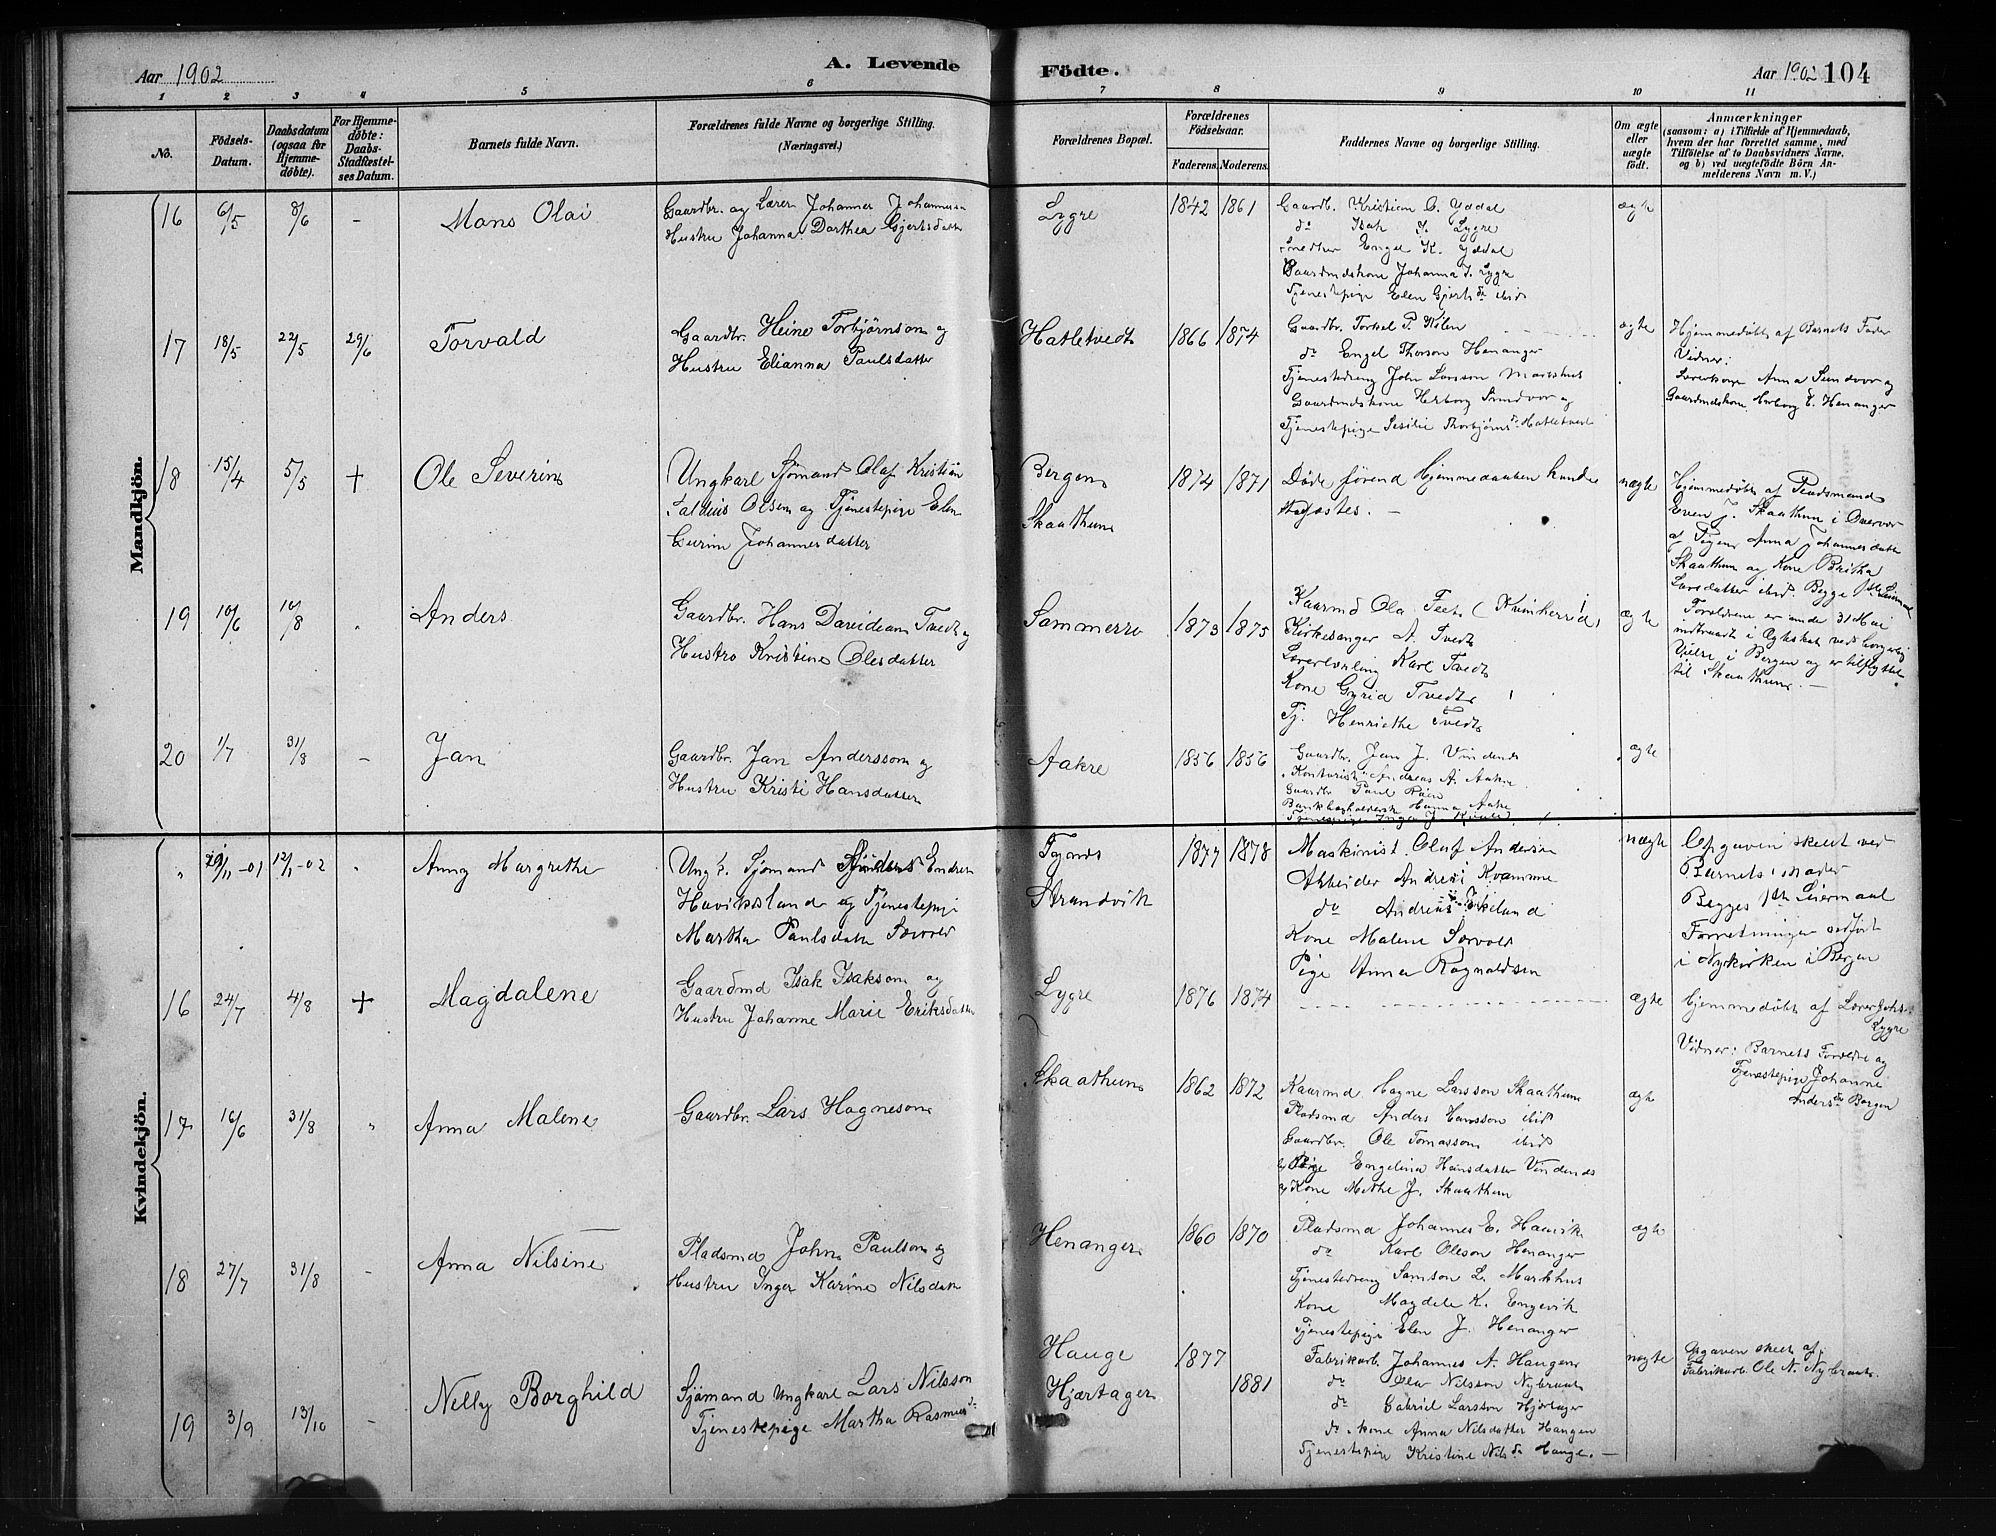 Aar 1902
A. Levende
Födte.
Aar 1902 104
1 2 3 4 5 6 7 8 9 10 11
No.
Födsels-Datum.
Daabsdatum (ogsaa for Hjemme-döbte).
For Hjemme-döbte: Daabs-Stadfæstel-ses Datum.
Barnets fulde Navn.
Forældrenes fulde Navne og borgerlige Stilling. (Næringsvei.)
Forældrenes Bopæl.
Forældrenes Födselsaar.
Faderens. Moderens.
Faddernes Navne og borgerlige Stilling.
Om ægte eller uægte födt.
Anmærkninger
(saasom: a) i Tilfælde af Hjemmedaab,
hvem der har forrettet samme, med
Tilföielse af to Daabsvidners Navne,
og b) ved uægtefödte Börn An-
melderens Navn m. V.)
Mandkjön.
16 6/5 8/6 - Mons Olai
Gaardbr. og Lærer Johannes Johannesen
Hustru Johanna Dorthea Gjertsdatter
Lygre 1842 1861
Gaardb. Kristian O. Yddal
do Isak J. Lygre
Engel K. Yddal
Gaardmdskone Johanna J. Lygre
Tjenestepige Elen Gjertsdr ibid
ægte
17 18/5 22/5 29/6 Torvald
Gaardbr. Heine Torbjørnson og
Hustru Elianna Paulsdatter
Hatletvedt 1866 1874
Gaardbr. Torkel P. Kölen
do Engel Thorson Henanger
Tjenestedreng John Larsson Markhus
Gaardmdskone Herborg Sundvor og
Tjenestepige Sesilie Thorbjörnsdr Hatletvedt
ægte
Hjemmedøbt af Barnets Fader
Vidner:
Anna Sundvor og
Gaardmdskone Herborg E. Henanger
18 15/4 5/5 + Ole Severin
Ungkarl Sjømand Olaf Kristian
Olsen og Tjenestepige Elen
Gurine Johannesdatter
Bergen
Skaathun
1874 1871
Døde førend Hjemmedaaben kunde
stadfæstes. -
uægte
Hjemmedøbt af Pladsmand
Even J. Skaathun i Overvær
af Pigen Anna Johannesdatter
Skaathun og Kone Britha
Larsdatter ibid. Begge 1ste Leiermaal
Forældrene er under 31 Mai
indtraadt i Egteskab ved borgerlig
Vielse i Bergen og er tilflyttet
til Skaathun. -
19 10/6 10/8 Anders
Gaardbr. Hans Davidson Tvedt og
Hustro Kristine Olesdatter
Sammerro 1873 1875
Kaarmd Ola Feet (Kvinherred)
Kirkesanger A. Tvedt
Karl Tvedt
Kone Gyrid Tvedt
Tj. Henriethe Tvedt
ægte
20 1/7 31/8 - Jan
Gaardbr. Jan Andersson og
Hustru Kristi Hansdatter
Aakre 1856 1856
Gaardbr. Jan J. Vindenes
Kontorist Andreas A. Aakre
Gaardbr Paul Röen
Hanna Aakre
Tjenestepige Inga J.
ægte
Kvindekjön.
" 29/11-01 12/1-02 " Anny Margrethe
Ungk. Sjømand Endre
Haviksland og Tjenestepige
Martha Paulsdatter Sævold
Strandvik
1877 1878
Maskinist Oluf Andersen
Arbeider Andreas Kvamme
do Andreas Økeland
Kone Malene Sævold
Pige Anna Ragnaldsen
uægte
Opgaven skeet ved
Barnets moder
Begges 1ste Leiermaal
Forretningen udført
i Nykirken i Bergen
16 24/7 4/8 + Magdalene
Gaardmd Isak Isakson og
Hustru Johanne Marie Eriksdatter
Lygre 1876 1874
ægte
Hjemmedøbt af Lærer Johs.
Lygre
Vidner: Barnets Forældre og
Tjenestepige Johanne
Andersdr Borgen
17 16/6 31/8 " Anna Malene
Gaardbr. Lars Hagneson
Skaathun 1862 1872
Kaarmd Hagne Larsson Skaathun
Pladsmd Anders Hansson ibid
Gaardbr. Ole Tomasson ibid
Pige Engelina Hansdatter Vindenes
Kone Methe J. Skaathun
ægte
18 27/7 31/8 - Anna Nilsine
Pladsmd John Paulson og
Hustru Inger Karine Nilsdatter
Henanger 1860 1870
Pladsmd Johannes E. Havik
do Karl Oleson Henanger
Tjenestedreng Samson L. Markhus
Kone Magdela K. Engevik
Tjenestepige Elen J. Henanger
ægte
19 3/9 13/10 - Nelly Borghild
Sjømand Ungkarl Lars Nilsson
Tjenestepige Martha Rasmusdr
Hauge
Hjartager
1877
1881
Fabrikarb. Johannes A. Haugen
do Olav Nilsson Nybraaten
do Gabriel Larsson Hjartager
do kone Anna Nilsdatter Haugen
Tjenestepige Kristine Nilsdr Hauge. -
uægte
Opgaven skeet af
Fabrikarb. Ole N. Nybraaten